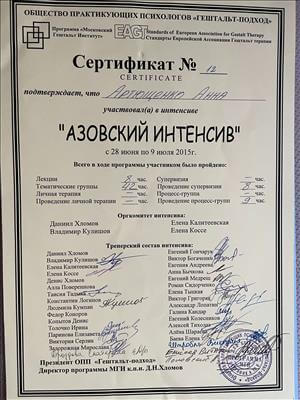 ОБЩЕСТВО ПРАКТИКУЮЩИХ ПСИХОЛОГОВ «ГЕШТАЛЬТ-ПОДХОД»
Программа «Московский Гештальт Институт»
EAGT
Standards of European Association for Gestalt Therapy
Стандарты Европейской Ассоциации Гештальт терапии
Сертификат № 12
CERTIFICATE
подтверждает, что Артющенко Анна
участвовал(а) в интенсиве
"АЗОВСКИЙ ИНТЕНСИВ"
с 28 июня по 9 июля 2015г.
Всего в ходе программы участником было пройдено:
Лекции 8 час. Супервизия — час.
Тематические группы 42 час. Проведение супервизии 8 час.
Личная терапия — час. Процесс-группа — час.
Проведение личной терапии — час. Проведение процесс-групп 9 час.
Оргкомитет интенсива:
Даниил Хломов Елена Калитеевская
Владимир Кулишов Елена Коссе
Тренерский состав интенсива:
Даниил Хломов Евгений Гончарук
Владимир Кулишов Виктор Богаченко
Елена Калитеевская Евгения Андреева
Елена Коссе Анна Бычкова
Денис Хломов Евгений Медреш
Алла Повереннова Роман Сидорченко
Таисия Гладыш Елена Тыцкая
Константин Логинов Виктор
Людмила Кумпан Александр Лопатин
Федор Коноров Галина Кандар
Копытов Денис Евгений Колесников
Толочко Ирина Алексей Тиходав
Паринова Елизавета Алёна Шаров
Виктория Серган Баева Елена
Задорожная Мирослава
Президент ОПП «Гештальт-подход»
Директор программы МГИ к.п.н. Д.Н.Хломов